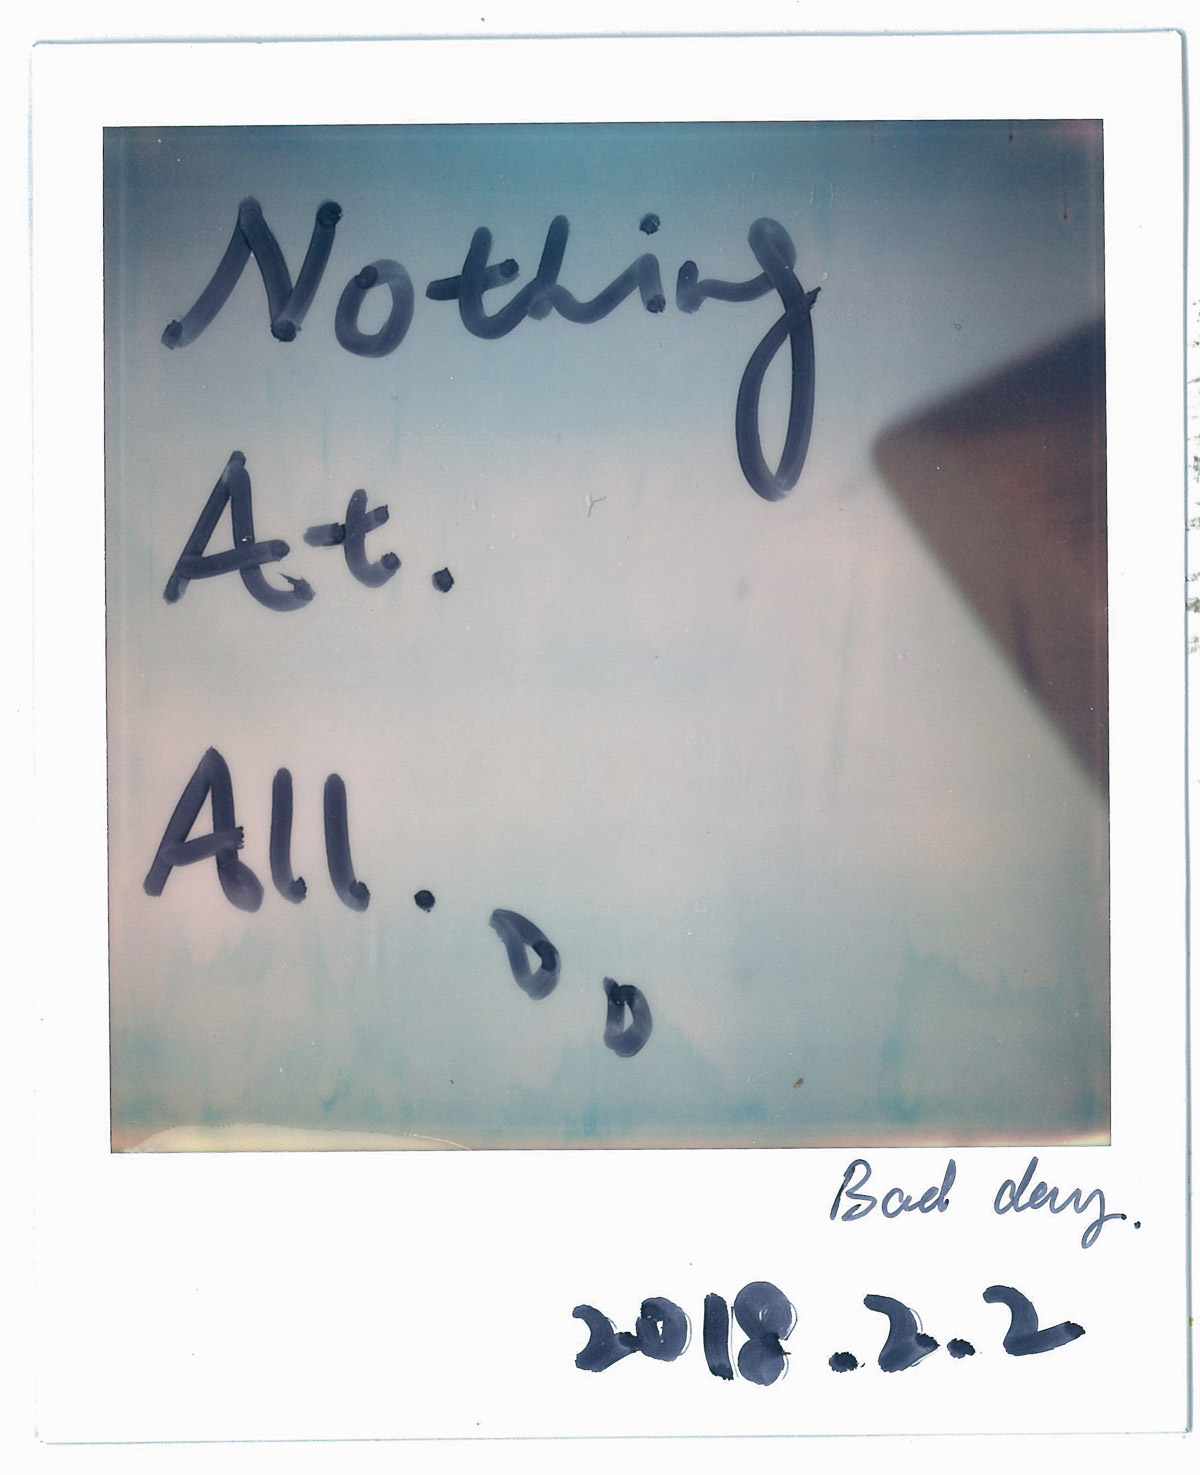 Nothing
At.
All.
Bad day.
2018.2.2